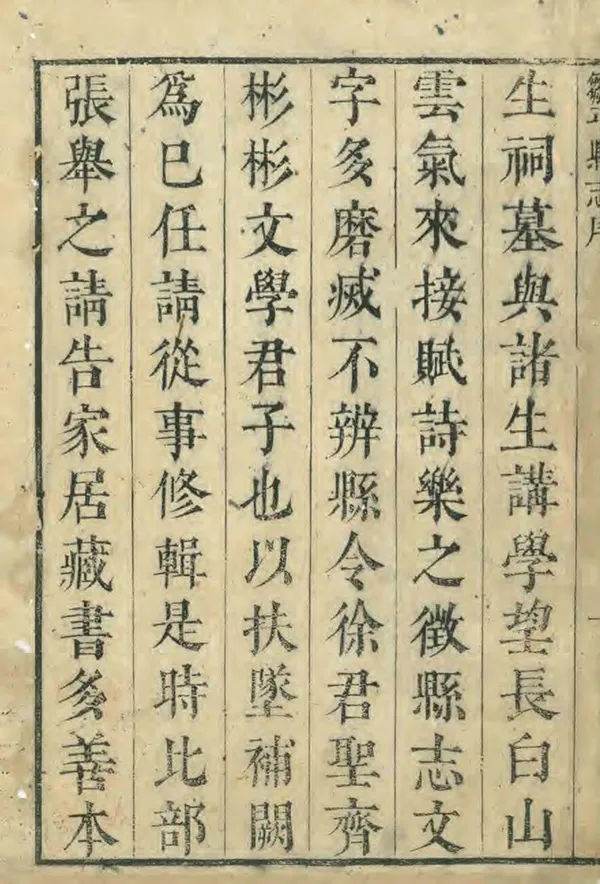 縣志序
生祠墓與諸生講學望長白山
雲氣來接賦詩樂之徵縣志文
字多磨滅不辨縣令徐君聖齊
彬彬文學君子也以扶墜補闕
為已任請從事修輯是時比部
張舉之請告家居藏書多善本